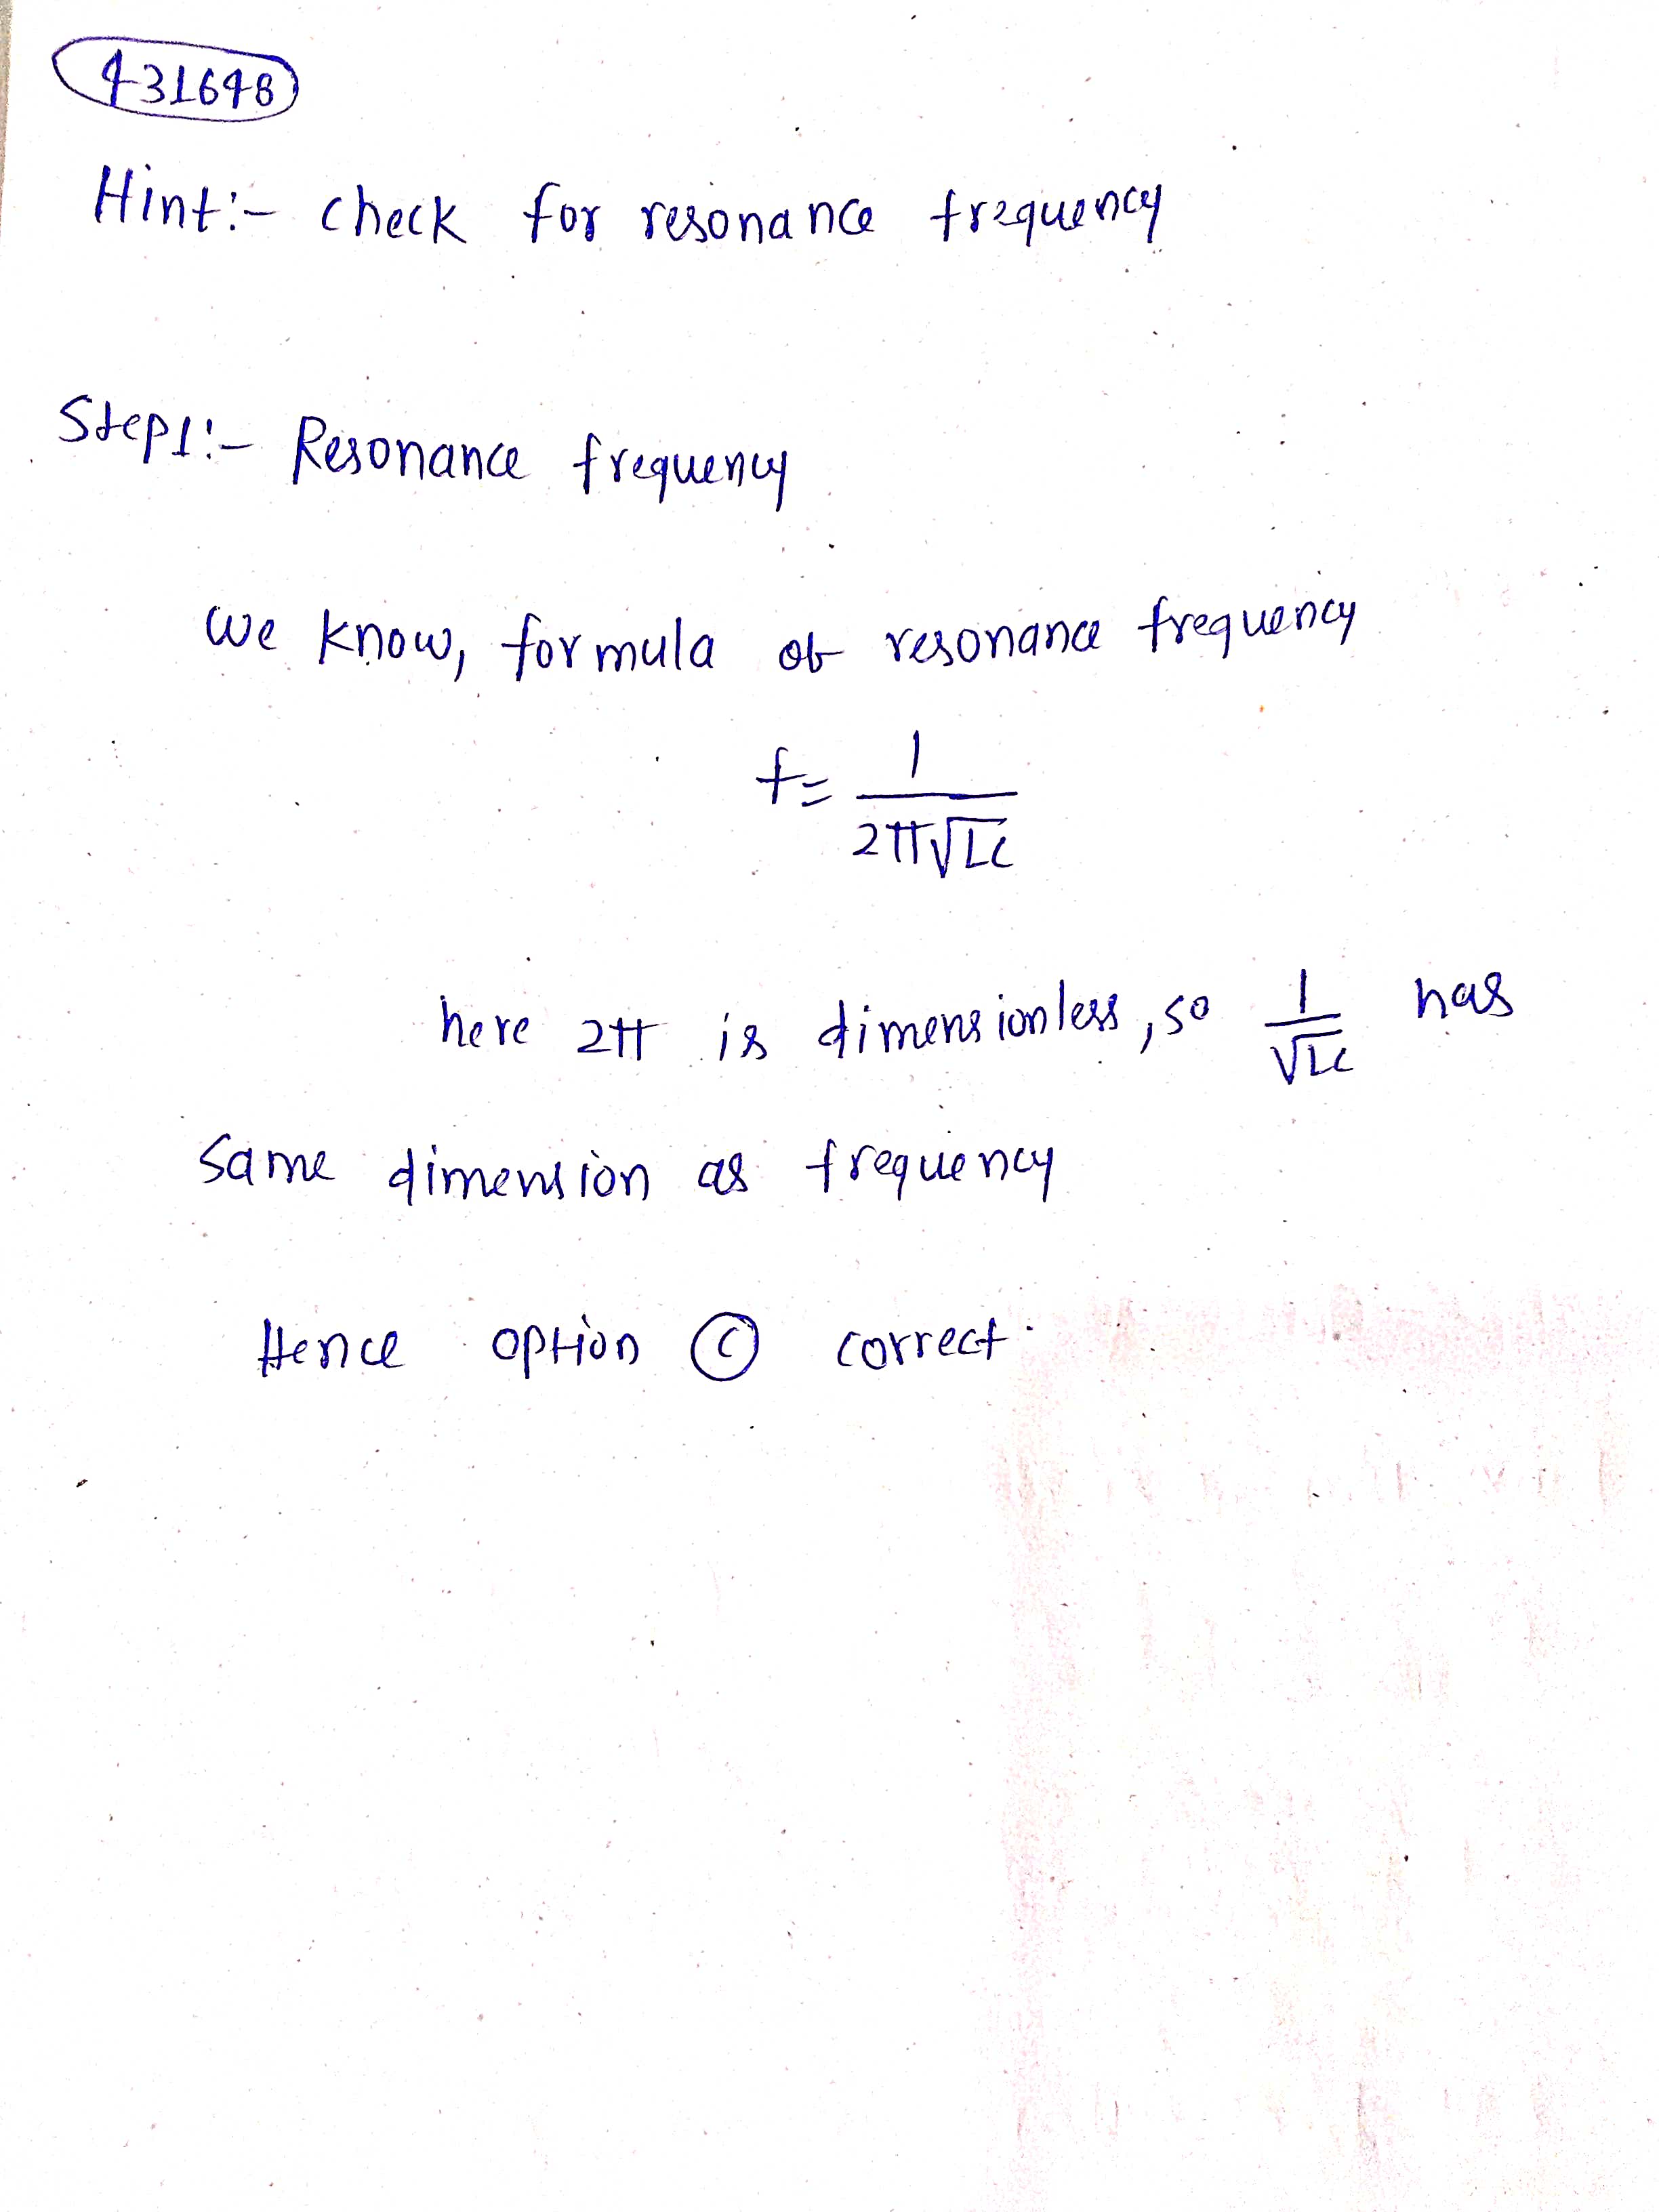 431648
Hint:- check for resonance frequency
Step1:- Resonance frequency
we know, formula of resonance frequency
f= 1/2π√LC
here 2π is dimensionless, so 1/√LC has
same dimension as frequency
Hence option (C) correct.